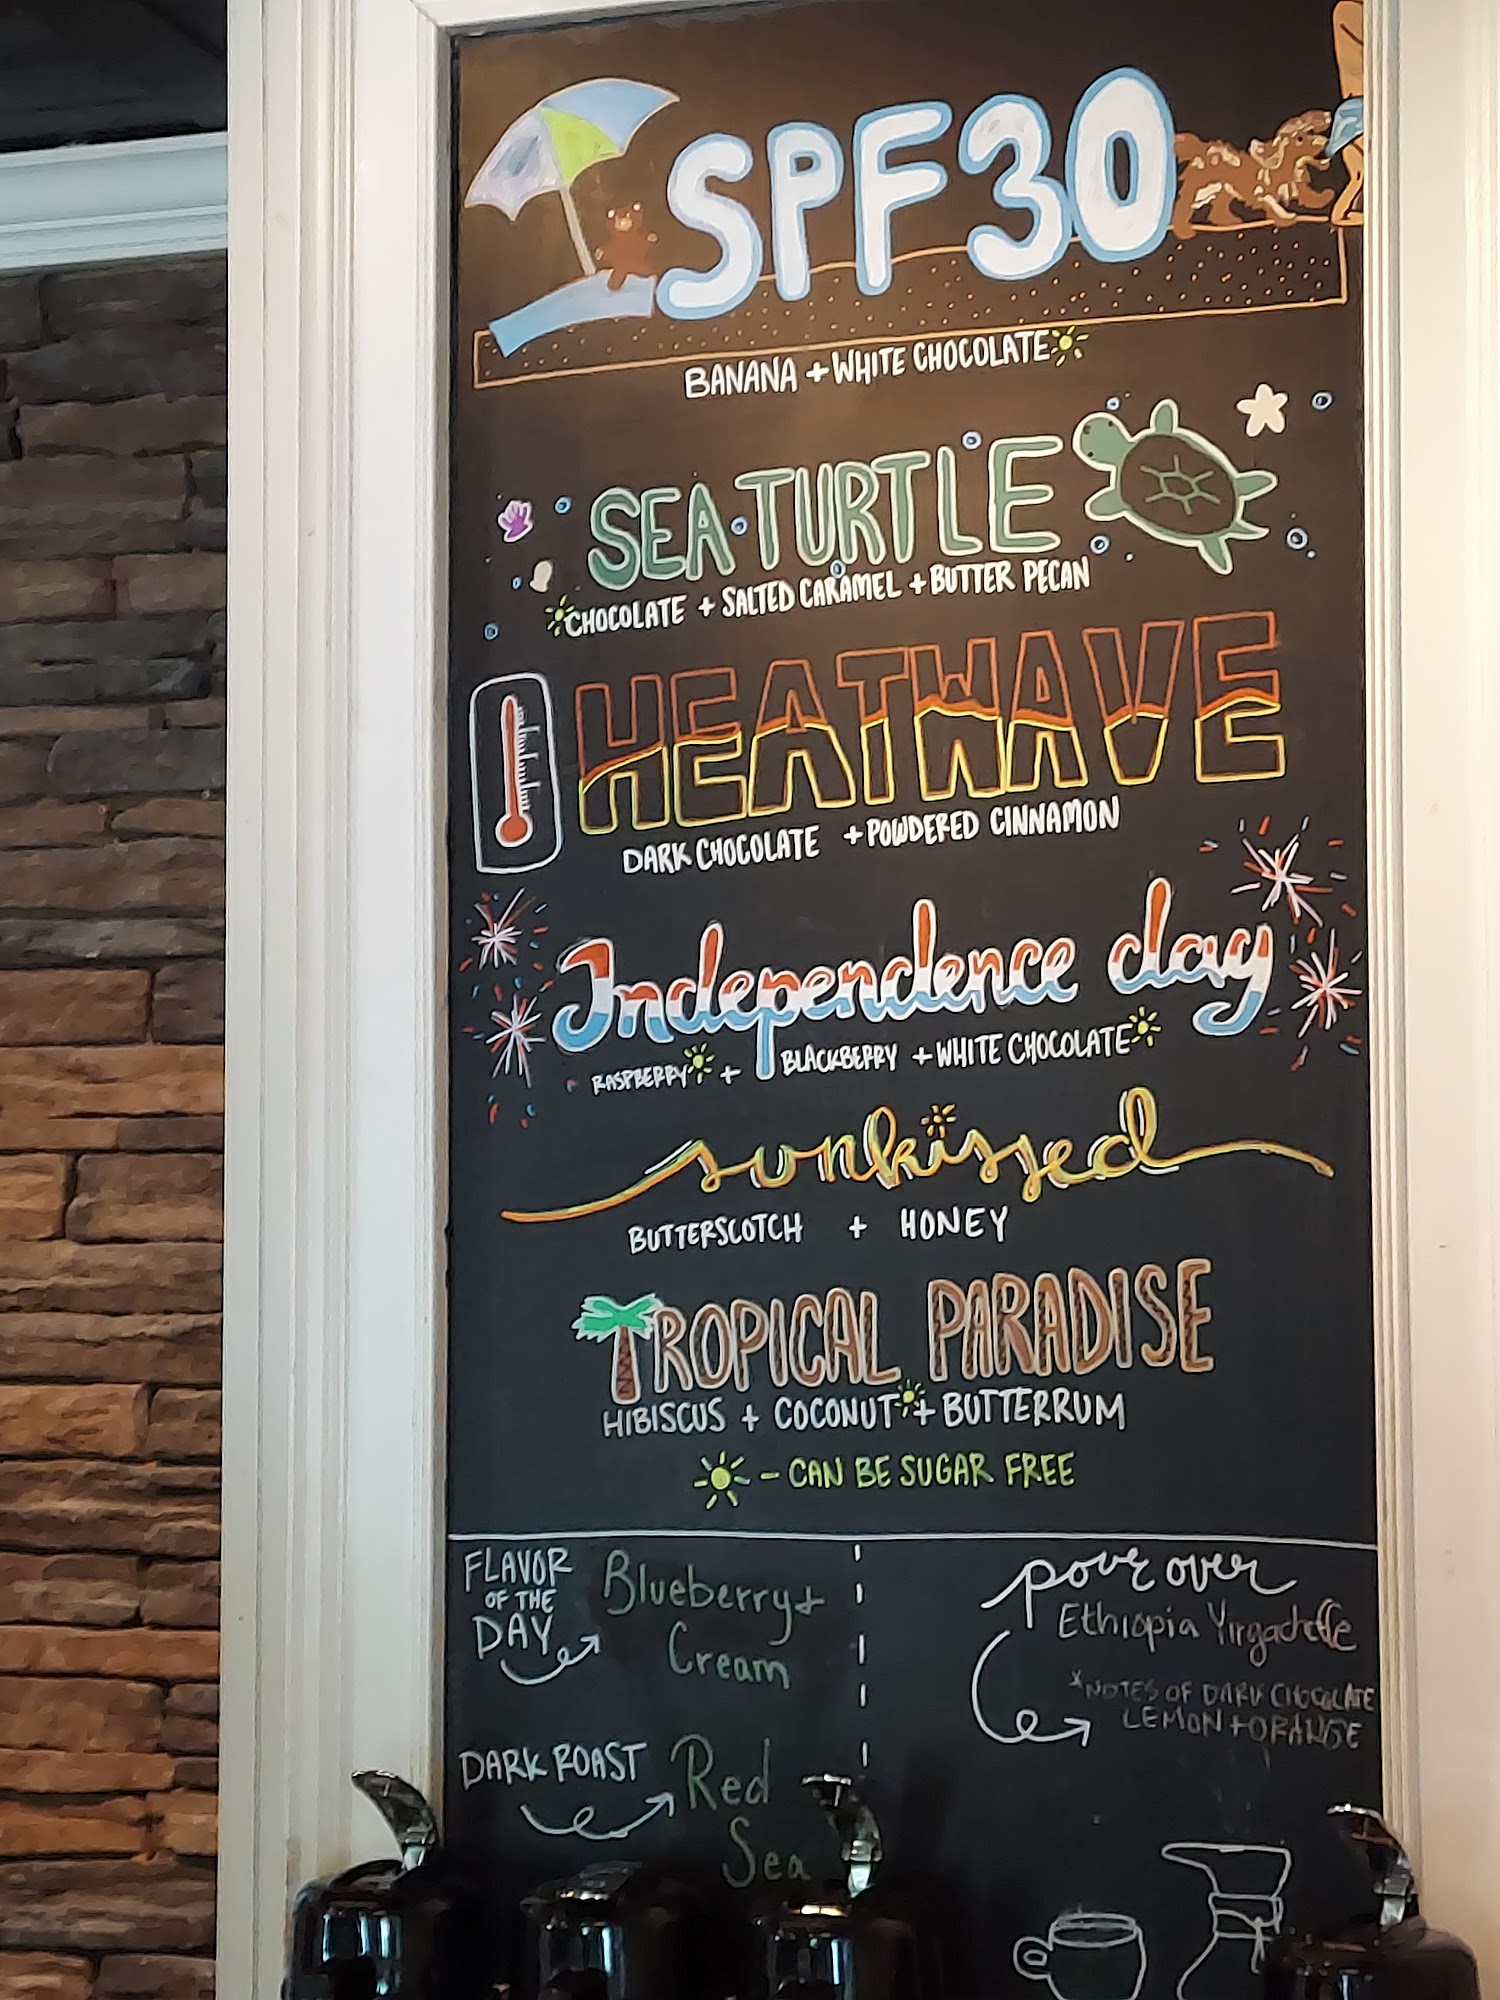 SPF30
BANANA + WHITE CHOCOLATE
SEA TURTLE
CHOCOLATE + SALTED CARAMEL + BUTTER PECAN
HEATWAVE
DARK CHOCOLATE + POWDERED CINNAMON
Independence day
RASPBERRY + BLACKBERRY + WHITE CHOCOLATE
sunkissed
BUTTERSCOTCH + HONEY
TROPICAL PARADISE
HIBISCUS + COCONUT + BUTTERRUM
- CAN BE SUGAR FREE
FLAVOR
OF THE
DAY
Blueberry +
Cream
DARK ROAST
Red
Sea
pour over
Ethiopia Yirgacheffe
*NOTES OF DARK CHOCOLATE
LEMON + ORANGE